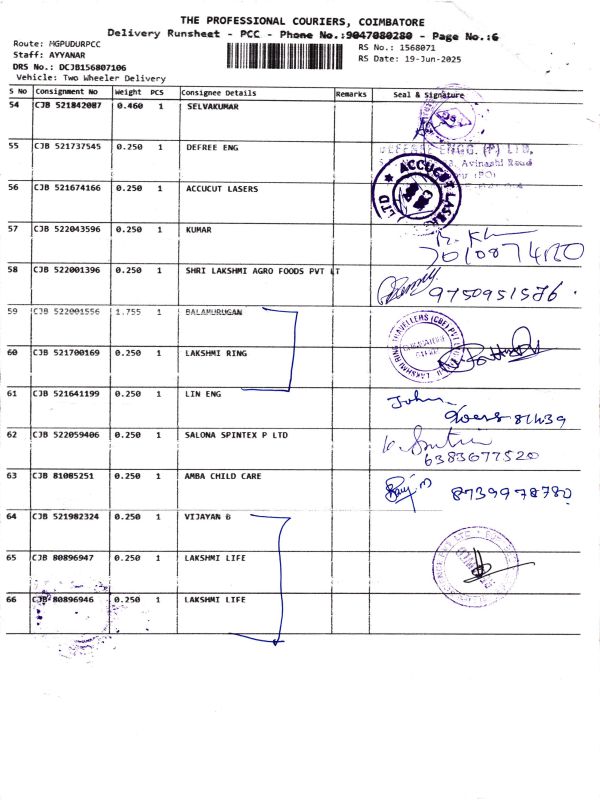 THE PROFESSIONAL COURIERS, COIMBATORE
Delivery Runsheet - PCC - Phone No.:9047080280 - Page No.:6
Route: MGPUDURPCC
RS No.: 1568071
Staff: AYYANAR
RS Date: 19-Jun-2025
DRS No.: DCJB156807106
Vehicle: Two Wheeler Delivery
S No Consignment No Weight PCS Consignee Details Remarks Seal & Signature
54 CJB 521842087 0.460 1 SELVAKUMAR
55 CJB 521737545 0.250 1 DEFREE ENG
ENGG. (P) LTD.
Avinashi Road
56 CJB 521674166 0.250 1 ACCUCUT LASERS
ACCUCUT LASERS
LTD
57 CJB 522043596 0.250 1 KUMAR
58 CJB 522001396 0.250 1 SHRI LAKSHMI AGRO FOODS PVT LT
9750951576
59 CJB 522001556 1.755 1 BALAMURUGAN
LAKSHMI RING TRAVELLERS (CBE) PVT
60 CJB 521700169 0.250 1 LAKSHMI RING
61 CJB 521641199 0.250 1 LIN ENG
John
62 CJB 522059406 0.250 1 SALONA SPINTEX P LTD
6383677520
63 CJB 81085251 0.250 1 AMBA CHILD CARE
8739978780
64 CJB 521982324 0.250 1 VIJAYAN B
65 CJB 80896947 0.250 1 LAKSHMI LIFE
66 CJB 80896946 0.250 1 LAKSHMI LIFE